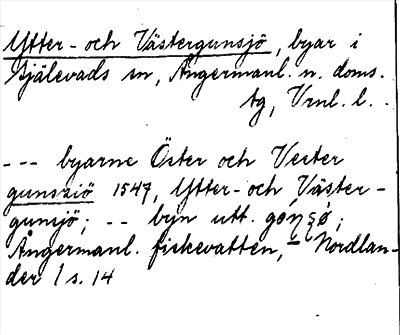 Ytter- och Västergunsjö, byar i
Själevads sn, Ångermanl. n. doms.
tg, Vrnl. l. .
--- byarne Öster och Vester
gunsziö 1547, Ytter- och Väster-
gunsjö; -- byn utt.
Ångermanl. fiskevatten, – Nordlan-
der / s. 14